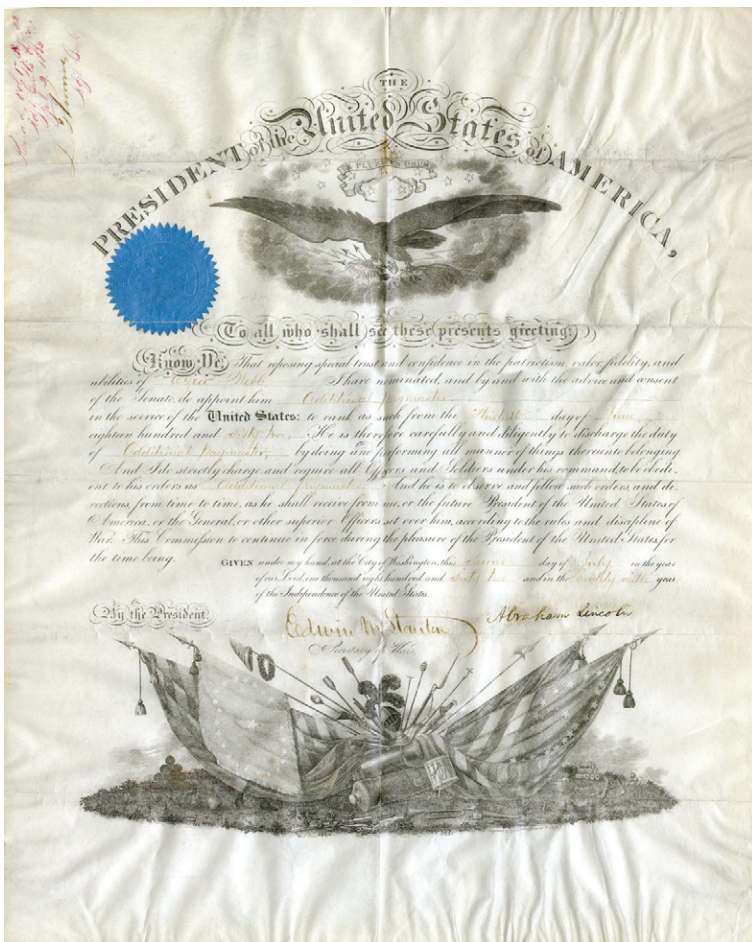 THE
PRESIDENT of the United States of AMERICA,
E PLURIBUS UNUM
To all who shall see these presents greeting:
Know Ye, That reposing special trust and confidence in the patriotism, valor, fidelity, and
abilities of Ezra Webb I have nominated, and by and with the advice and consent
of the Senate, do appoint him Additional Paymaster
in the service of the United States: to rank as such from the day of June
eighteen hundred and sixty two. He is therefore carefully and diligently to discharge the duty
of Additional Paymaster by doing and performing all manner of things thereunto belonging
And I do strictly charge, and require all Officers and Soldiers under his command, to be obedi-
ent to his orders as Additional Paymaster And he is to observe and follow such orders, and di-
rections, from time to time, as he shall receive from me, or the future President of the United States of
America, or the General, or other superior Officers set over him, according to the rules and discipline of
War. This Commission to continue in force during the pleasure of the President of the United States, for
the time being.
GIVEN under my hand, at the City of Washington, this day of July in the year
of our Lord, one thousand eight hundred and sixty two and in the eighty year
of the Independence of the United States.
By the President.
Abraham Lincoln
Edwin M Stanton
Secretary of War.